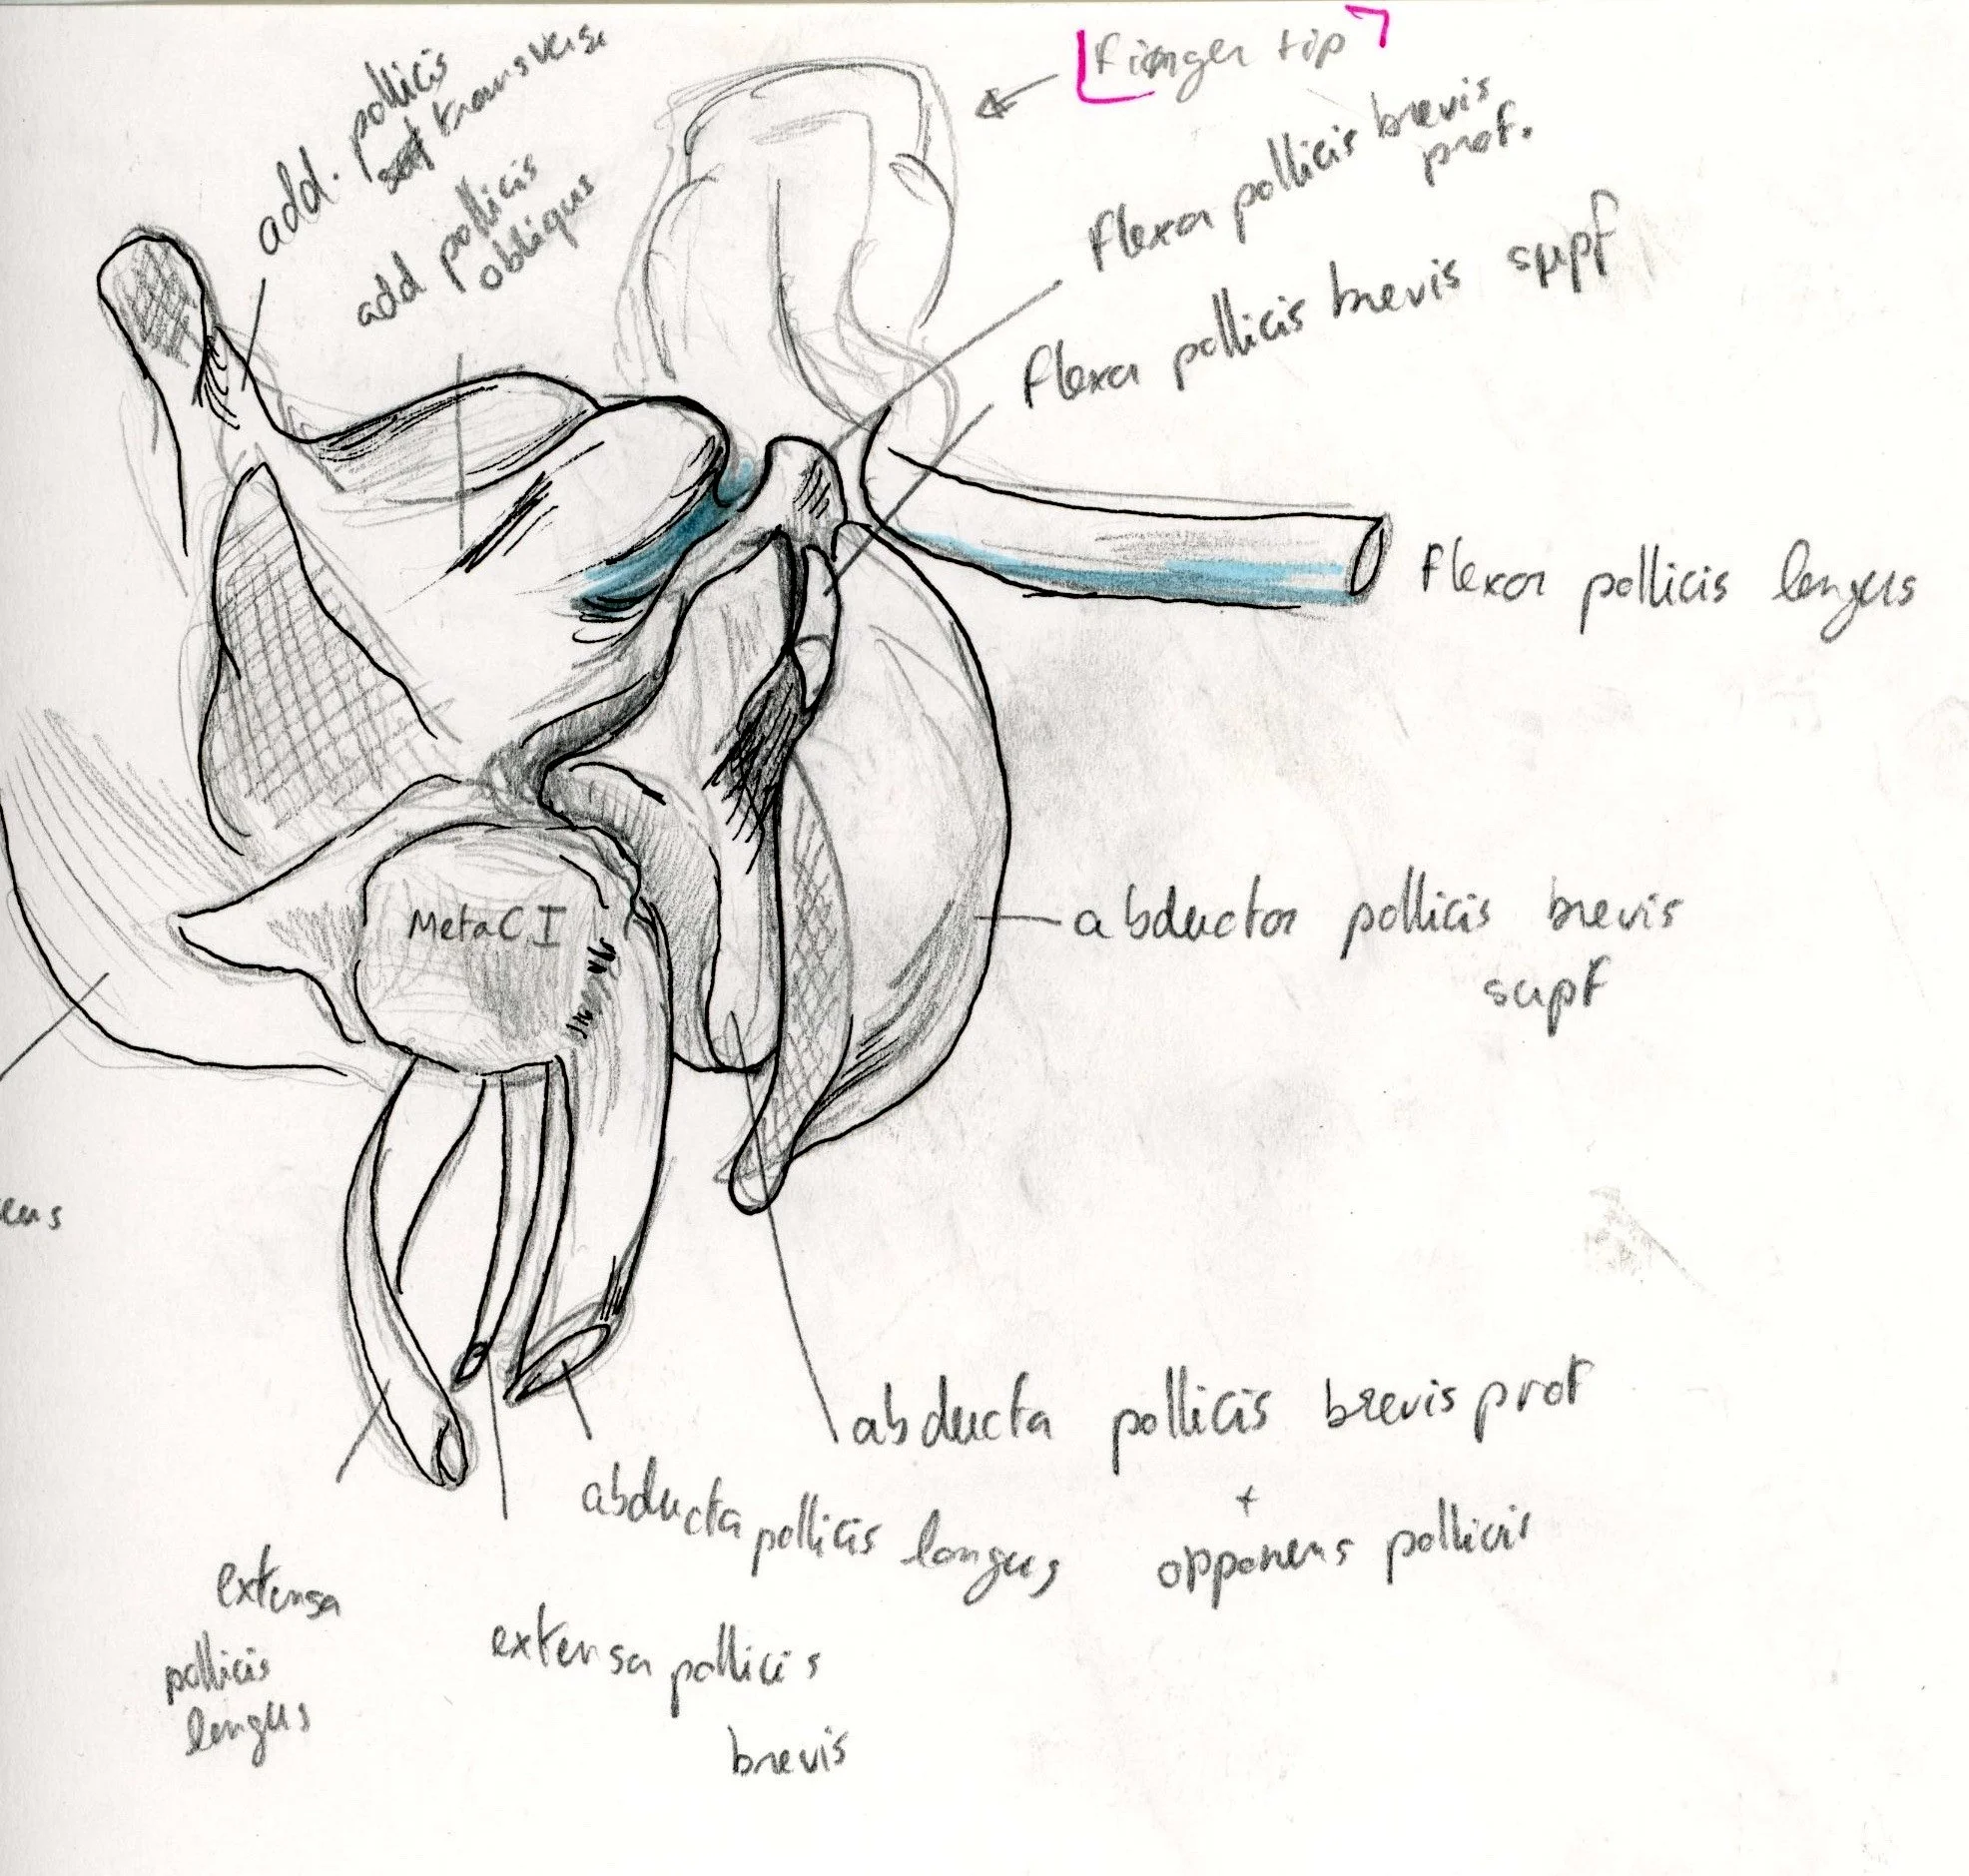 finger tip
add. pollicis
transverse
add pollicis
obliqus
flexor pollicis brevis
prof.
flexor pollicis brevis supf
flexor pollicis longus
MetaC I
abductor pollicis brevis
supf
abductor pollicis brevis prof
+
opponens pollicis
abductor pollicis longus
extensor
pollicis
longus
extensor pollicis
brevis